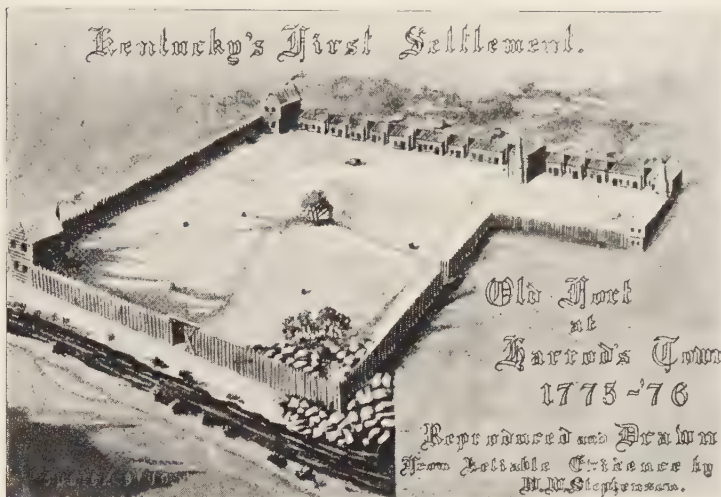 Kentucky's First Settlement.
Old Fort
at
Harrod's Town
1775-'76
Reproduced and Drawn
From Reliable Evidence by
W.W. Stephenson.